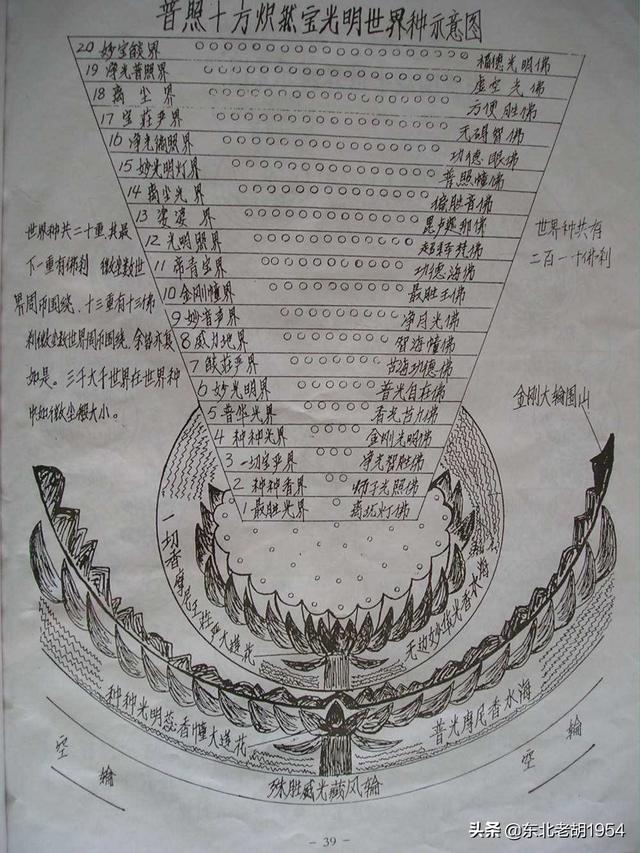 普照十方炽然宝光明世界种示意图
20 妙宝燄界 福德光明佛
19 净光普照界 虚空光佛
18 离尘界 方便胜佛
17 宝莊严界 无碍智佛
16 净光徧照界 功德眼佛
15 妙光明灯界 普照幢佛
14 离尘光界 徧胜音佛
13 娑婆界 毘卢遮那佛
12 光明照界 超释梵佛
11 帝青宝界 功德海佛
10 金刚幢界 最胜王佛
9 妙音声界 净月光佛
8 威力地界 智海幢佛
7 莊严界 古海功德佛
6 妙光明界 普光自在佛
5 普华光界 香光古力佛
4 种种光界 金刚光明佛
3 一切宝严界 净光智胜佛
2 种种香界 师子光照佛
1 最胜光界 离垢灯佛
世界种共二十重,其最
下一重有佛刹 微尘数世
界周帀围绕,十三重有十三佛
刹微尘数世界周帀围绕,余皆亦复
如是。三千大千世界在世界种
中如微尘般大小。
世界种共有
二百一十佛刹
金刚大轮围山
一切香摩尼王莊严大莲花
无边妙华光香水海
种种光明蕊香幢大莲花
普光摩尼香水海
空轮
空轮
殊胜威光藏风轮
- 39 -
头条 @东北老胡1954